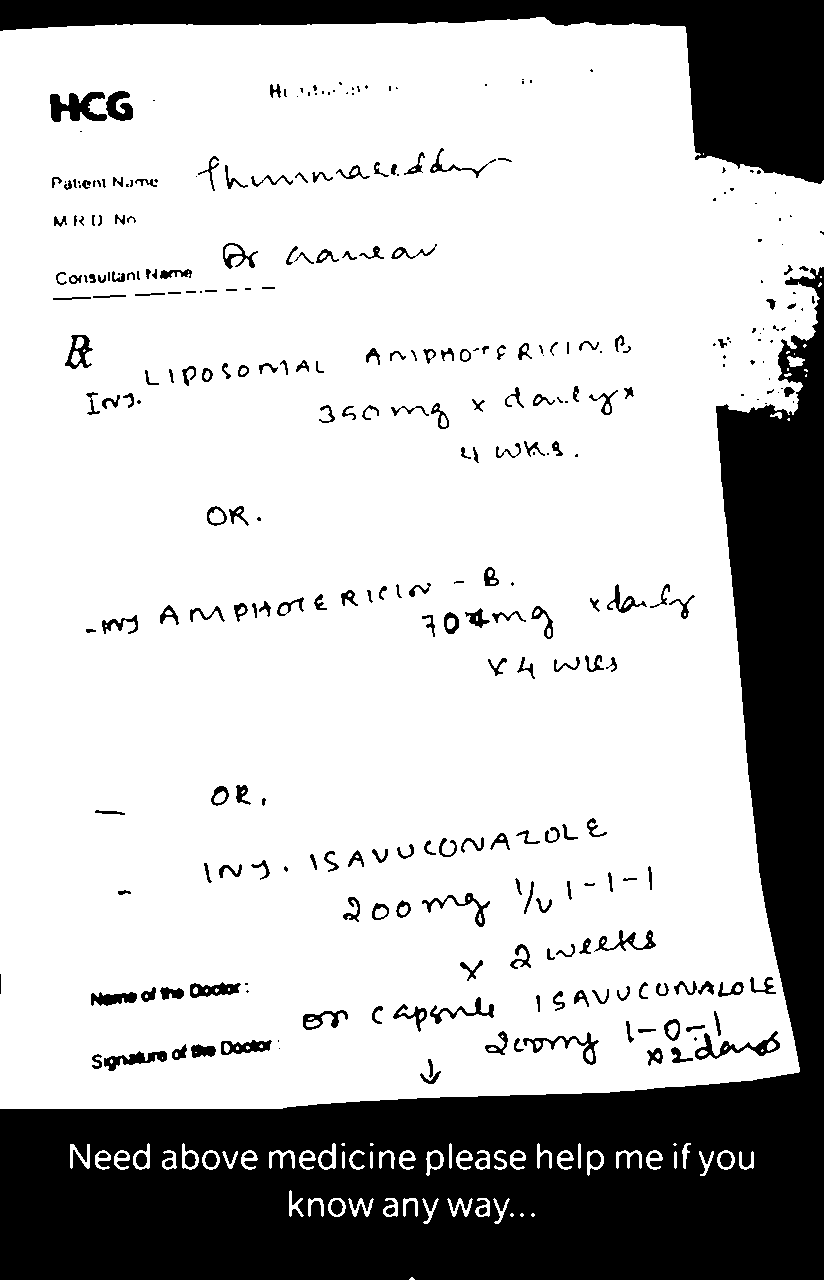 HCG
Patient Name Thimmareddy
M R D No
Consultant Name Dr
Rx
INJ. LIPOSOMAL AMPHOTERICIN. B
350mg x daily x
4 wks.
OR.
- INJ AMPHOTERICIN - B.
70mg x daily
x 4 wks
— OR,
- INJ. ISAVUCONAZOLE
200mg I/V 1-1-1
x 2 weeks
Name of the Doctor :
or capsule ISAVUCONAZOLE
Signature of the Doctor :
200mg 1-0-1
x 2 days
↓
Need above medicine please help me if you
know any way...